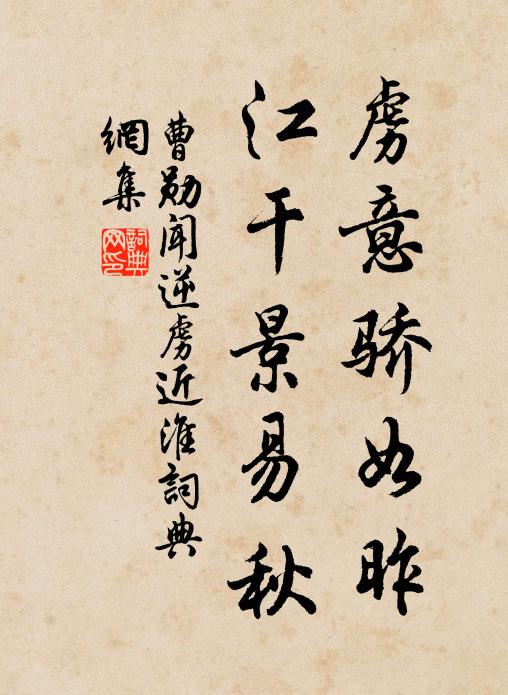 虏意骄如昨
江干景易秋
曹勋闻逆虏近淮詞典
網集
詞典网印